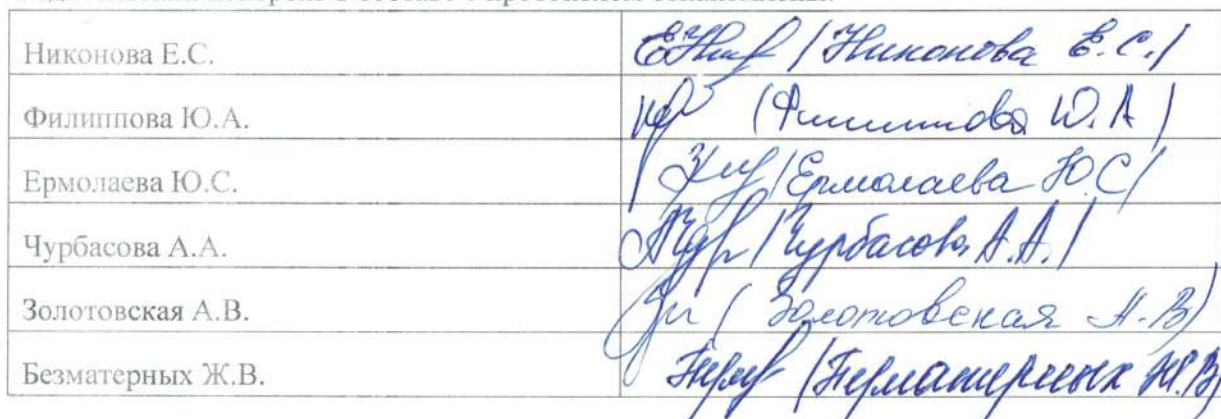 Никонова Е.С. /Никонова Е.С./
Филиппова Ю.А. (Филиппова Ю.А)
Ермолаева Ю.С. /Ермолаева Ю.С/
Чурбасова А.А. /Чурбасова А.А./
Золотовская А.В. (Золотовская А.В)
Безматерных Ж.В. (Безматерных Ж.В)